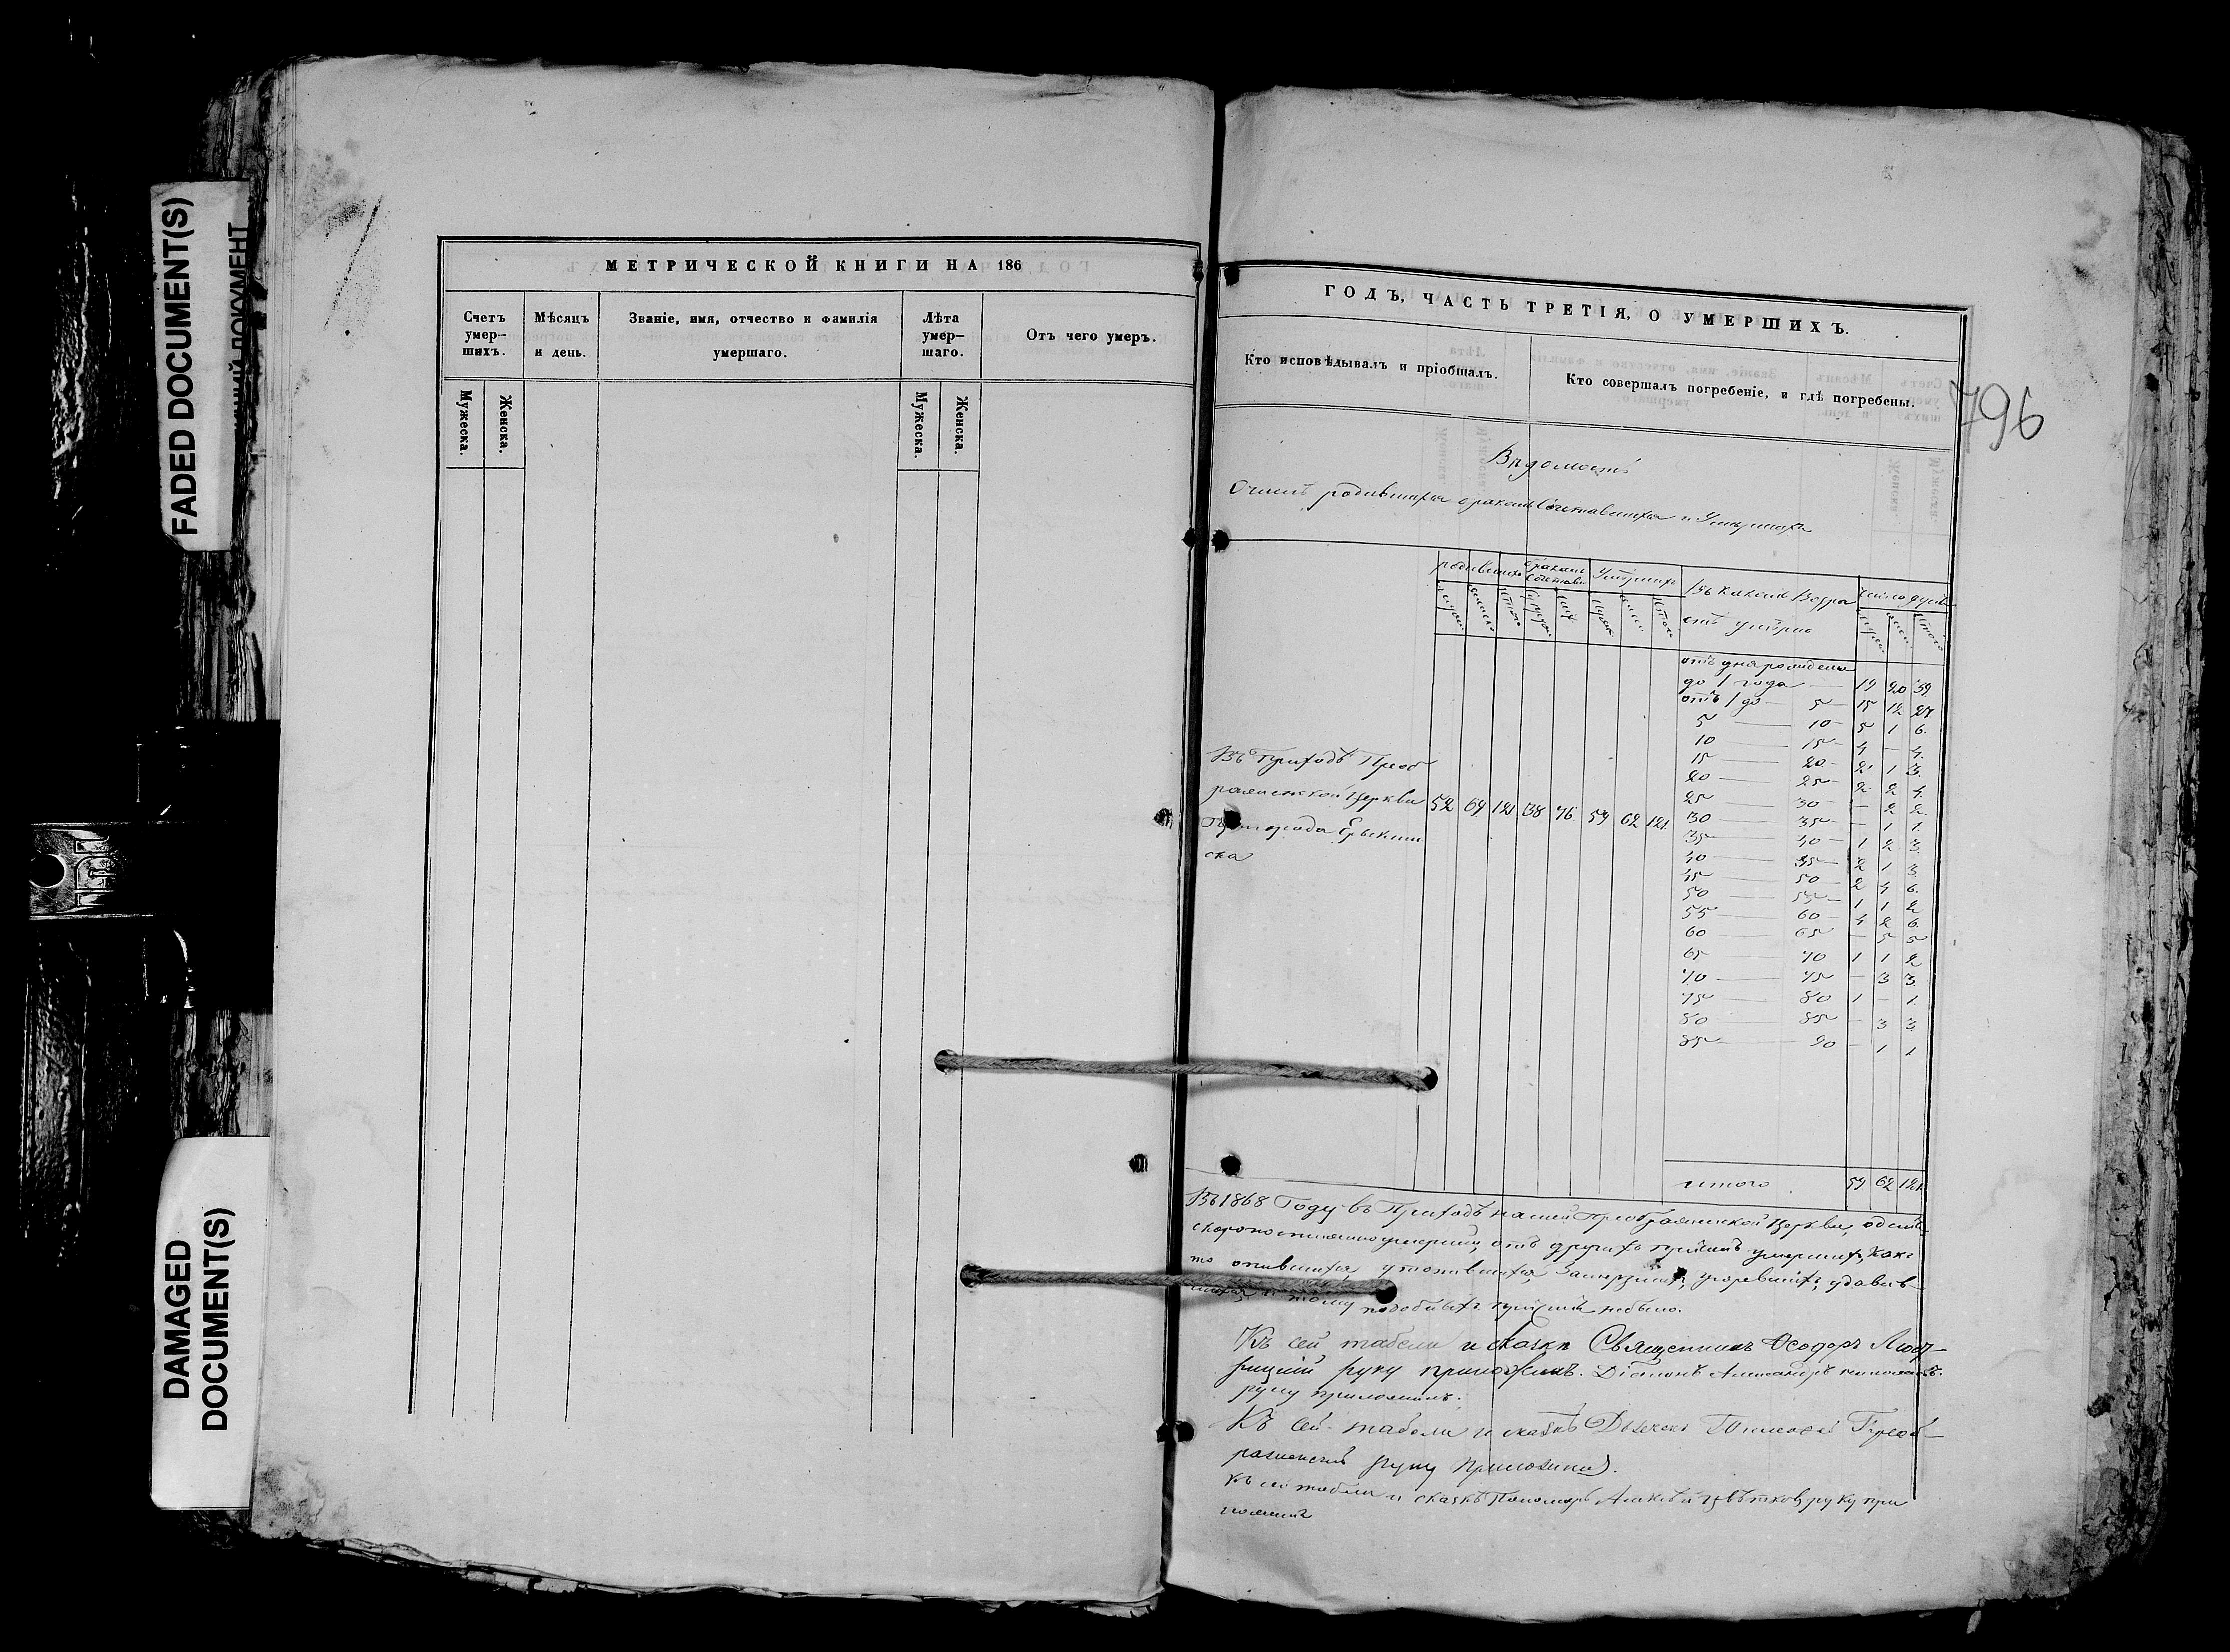 FADED DOCUMENT(S)
DAMAGED
DOCUMENT(S)
МЕТРИЧЕСКОЙ КНИГИ НА 186
Счетъ умер-шихъ.
Мѣсяцъ и день.
Званіе, имя, отчество и фамилія умершаго.
Лѣта умер-шаго.
Отъ чего умеръ.
Мужеска.
Женска.
Мужеска.
Женска.
ГОДЪ, ЧАСТЬ ТРЕТІЯ, О УМЕРШИХЪ.
Кто исповѣдывалъ и пріобщалъ.
Кто совершалъ погребеніе, и гдѣ погребены.
796
Вѣдомость
родившихся бракомъ Сочетавшихся и Умершихъ
от дня рожденья
до 1 года — 19 20 39
отъ 1 до — 5 — 15 12 27
5 — 10 — 5 1 6.
10 — 15 — 4 — 4.
15 — 20 — 2 1 3.
20 — 25 — 2 2 4.
25 — 30 — — 2 2.
30 — 35 — — 1 1.
35 — 40 — 1 2 3.
40 — 45 — 2 1 3.
45 — 50 — 2 4 6.
50 — 55 — 1 1 2
55 — 60 — 4 2 6.
60 — 65 — 5 5
65 — 70 1 1 2
70 — 75 — 3 3.
75 — 80 1 — 1.
80 — 85 — 3 3
85 — 90 — 1 1
Въ Приходѣ Преоб
раженской Церкви 52 69 121 38 76 59 62 121.
Пригорода Ерыклин
ска
итого 59 62 121.
Въ 1868 Году въ Приходѣ нашей Преображенской Церкви,
скоропостижно умершихъ, отъ другихъ причинъ умершихъ, како
то опившихся, утопившихся, Замерзшихъ, угоревшихъ, удавив-
шихся и тому подобныхъ небыло.
Къ сей табели и сказкѣ Священникъ Ѳеодоръ
руку приложилъ. Діаконъ Александръ
руку приложилъ.
Къ сей табели и сказкѣ Дьячекъ Тимофей Преоб-
раженскій руку приложилъ.
Къ сей табели и сказкѣ Пономарь Алексѣй Цвѣтковъ руку при
ложилъ